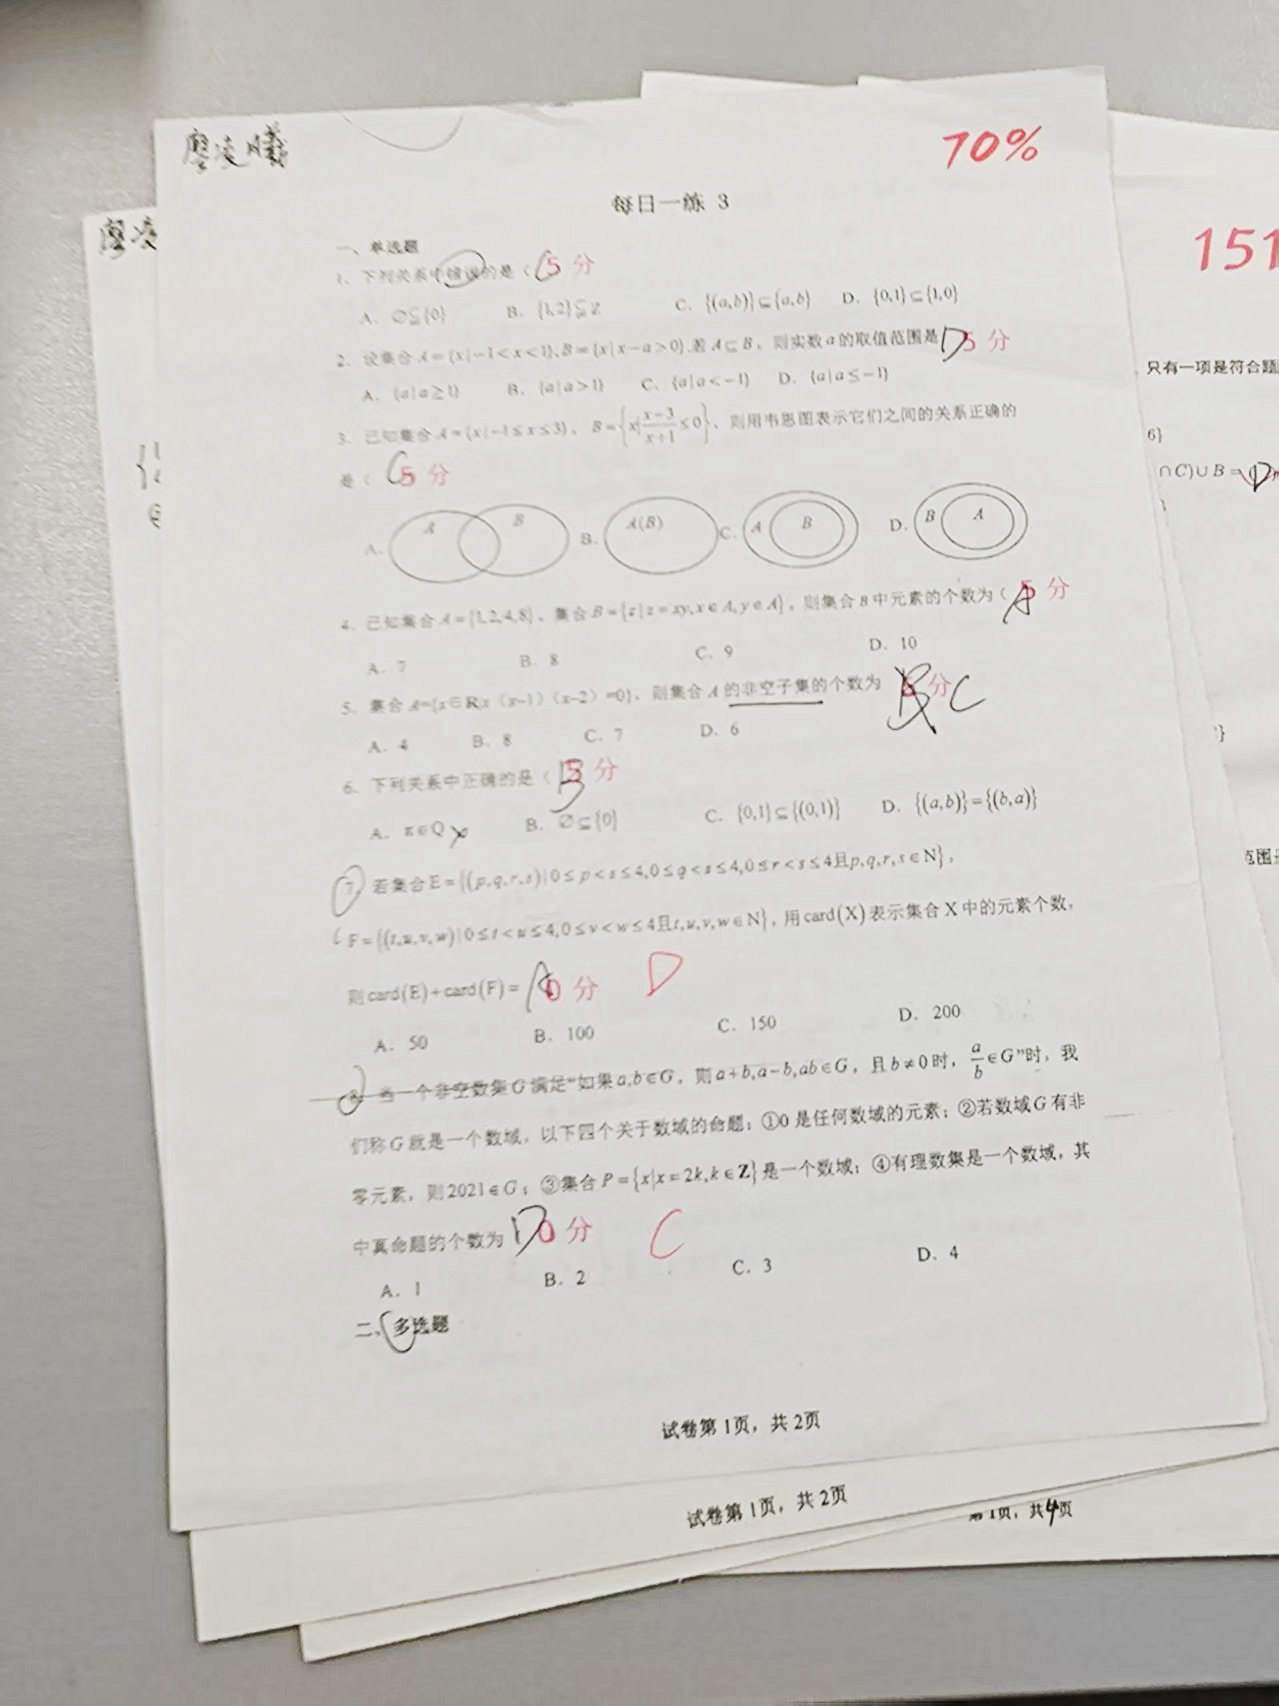 廖凌曦
70%
廖凌
151
每日一练 3
一、单选题
1、下列关系中错误的是（ C 5 分
A．∅⊆{0} B．{1,2}⊊Z C．{(a,b)}⊆{a,b} D．{0,1}⊆{1,0}
2、设集合 A={x|-1<x<1},B={x|x-a>0},若 A⊆B，则实数a的取值范围是 D 5 分
A．{a|a≥1} B．{a|a>1} C．{a|a<-1} D．{a|a≤-1}
3、已知集合 A={x|-1≤x≤3}，B={x|(x-3)/(x+1)≤0}，则用韦恩图表示它们之间的关系正确的
是（ C 5 分
A． A B B． A(B) C． A B D． B A
4、已知集合 A={1,2,4,8}，集合 B={z|z=xy,x∈A,y∈A}，则集合 B 中元素的个数为（ A 5 分
A．7 B．8 C．9 D．10
5、集合 A={x∈R|x（x-1）（x-2）=0}，则集合 A 的非空子集的个数为 5 分 C
A．4 B．8 C．7 D．6
6、下列关系中正确的是（ B 5 分
A．π∈Q × B．∅⊆{0} C．{0,1}⊆{(0,1)} D．{(a,b)}={(b,a)}
7、若集合 E={(p,q,r,s)|0≤p<s≤4,0≤q<s≤4,0≤r<s≤4且p,q,r,s∈N}，
F={(t,u,v,w)|0≤t<u≤4,0≤v<w≤4且t,u,v,w∈N}，用card(X)表示集合 X 中的元素个数，
则card(E)+card(F)= A 0 分 D
A．50 B．100 C．150 D．200
8、当一个非空数集 G 满足“如果 a,b∈G，则 a+b,a-b,ab∈G，且 b≠0 时，a/b∈G”时，我
们称 G 就是一个数域，以下四个关于数域的命题：①0 是任何数域的元素；②若数域 G 有非
零元素，则 2021∈G；③集合 P={x|x=2k,k∈Z}是一个数域；④有理数集是一个数域，其
中真命题的个数为 D 0 分 C
A．1 B．2 C．3 D．4
二、多选题
试卷第 1页，共 2页
试卷第 1页，共 2页
1页，共4页
只有一项是符合题
6}
∩C)∪B=
范围